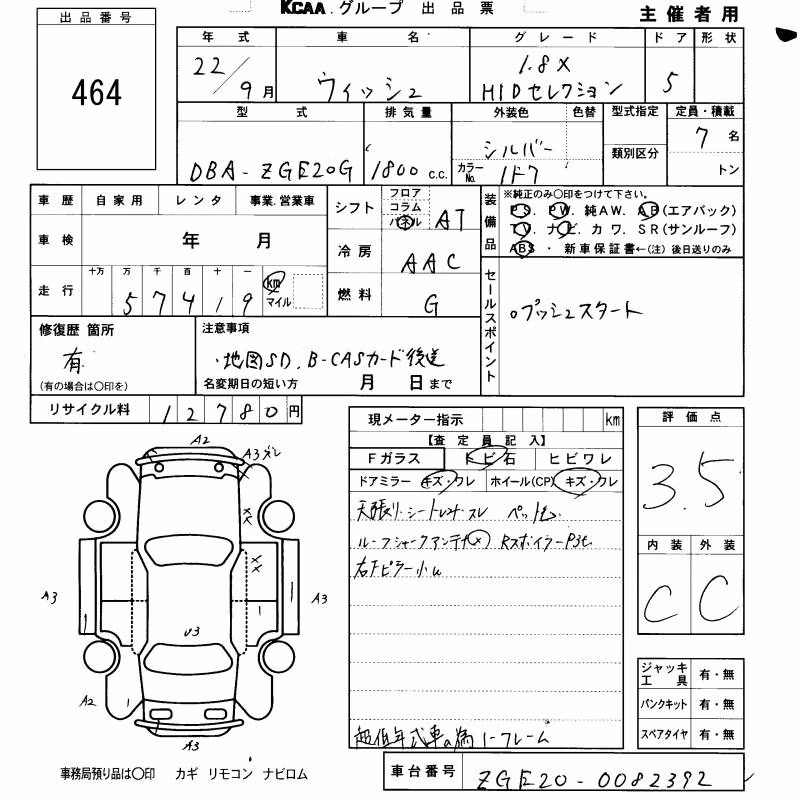 出品番号
464
KCAA.グループ 出品票
主催者用
年式 車名 グレード ドア 形状
22/9月 ウィッシュ 1.8X HIDセレクション 5
型式 排気量 外装色 色替 型式指定 定員・積載
DBA-ZGE20G 1800 c.c. シルバー カラーNo. 1F7 類別区分 7名
トン
車歴 自家用 レンタ 事業.営業車
車検 年 月
走行 十万 万 千 百 十 一
57419 km マイル
シフト フロア コラム パネル AT
冷房 AAC
燃料 G
装備品 ※純正のみ○印をつけて下さい。
PS. PW. 純AW. AB(エアバック)
TV. ナビ. カワ. SR(サンルーフ)
ABS ・ 新車保証書←(注) 後日送りのみ
セールスポイント
○プッシュスタート
修復歴 箇所
有
(有の場合は○印を)
注意事項
・地図SD、B-CASカード後送
名変期日の短い方 月 日まで
リサイクル料 12780円
現メーター指示 km
【査定員記入】
Fガラス トビ石 ヒビワレ
ドアミラー キズ・ワレ ホイール(CP) キズ・ワレ
天張り.シート
ルーフシャークアンテナ(×) Rスポイラー
右Fピラー小U
1-フレーム
評価点
3.5
内装 外装
C C
ジャッキ工具 有・無
パンクキット 有・無
スペアタイヤ 有・無
A2
A3
A3
A3
U3
A2
A3
事務局預り品は○印 カギ リモコン ナビロム
車台番号 ZGE20-0082392